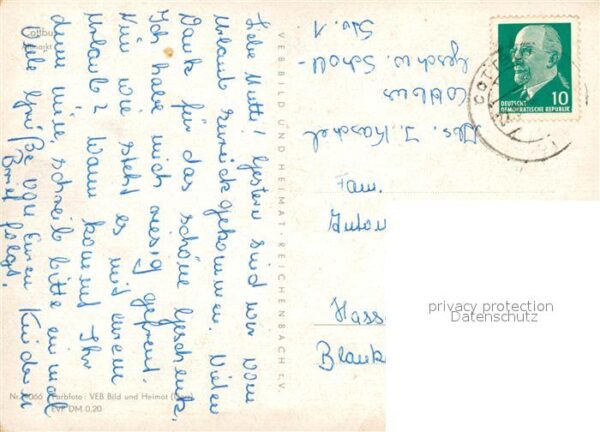 Cottbus
Altmarkt
Liebe Mutti! Gestern sind wir vom
Urlaub zurückgekommen. Vielen
Dank für das schöne Geschenk.
Ich habe mich riesig gefreut.
Nun wie steht es mit Eurem
Urlaub? Wann kommt Ihr
denn mice, schreib bitte einmal
Viele Grüße von Euren Kindern
Brief folgt.
Nr. 4066 Farbfoto: VEB Bild und Heimat
EVP DM 0,20
VEB BILD UND HEIMAT · REICHENBACH I. V.
Abs. J. Kaschel
Cottbus
Geschw. Scholl-
Str. 1
DEUTSCHE
DEMOKRATISCHE REPUBLIK
10
COTT
Fam.
Anton
Hass
Blank
privacy protection
Datenschutz